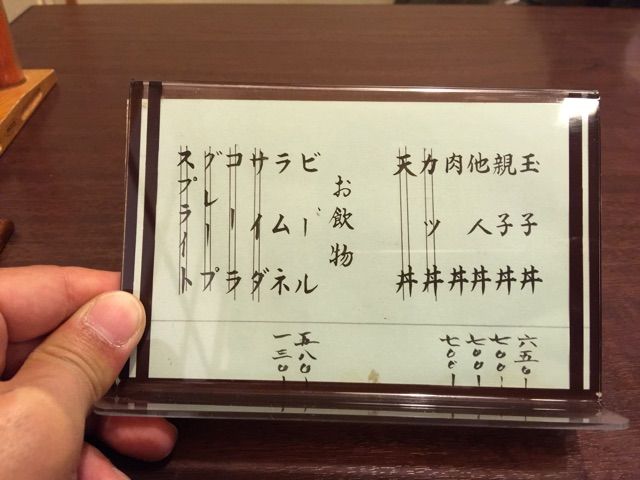 玉子丼 六五〇ー
親子丼 七〇〇ー
他人丼 七〇〇ー
肉丼 七〇〇ー
カツ丼
天丼
お飲物
ビール 五八〇ー
ラムネ 一三〇ー
サイダ
コーラ
グレープ
スプライト